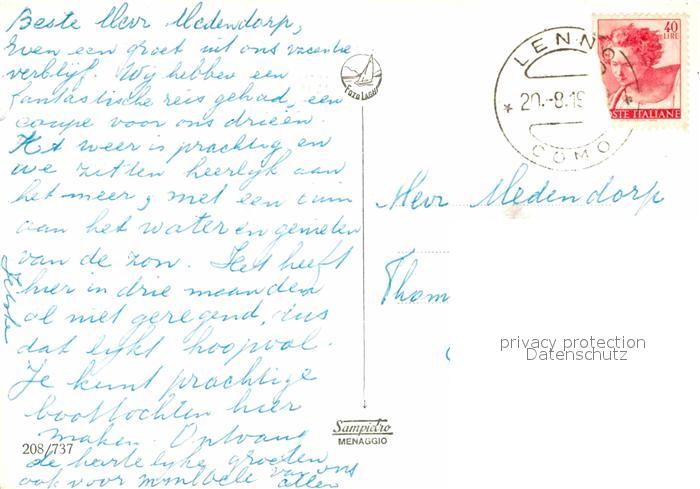 Beste Heer Medendorp,
Even een groet uit ons vacantie
verblijf. Wij hebben een
fantastische reis gehad, een
coupe voor ons drieën.
Het weer is prachtig en
we zitten heerlijk aan
het meer, met een tuin
aan het water en genieten
van de zon. Het heeft
hier in drie maanden
al niet geregend, dus
dat lijkt hoopvol.
Je kunt prachtige
boottochten hier
maken. Ontvang
de hartelijke groeten
ook voor van ons
allen
FOTO LAGO
LENNO
20.-8.19
COMO
40
LIRE
POSTE ITALIANE
Heer Medendorp
Thom
privacy protection
Datenschutz
Sampietro
MENAGGIO
208/737